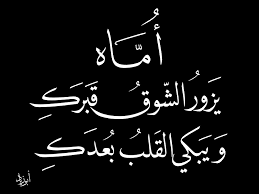 أُمَّاه
يَزورُ الشّوقُ قَبرَكِ
وَيَبكي القَلبُ بُعدَكِ